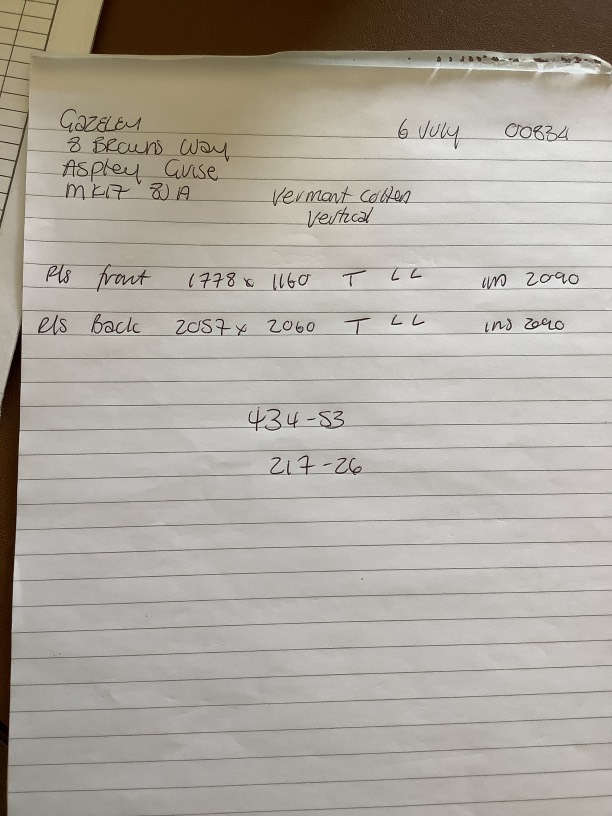 GAZELEY
6 July 00834
8 Browns Way
Aspley Guise
MK17 8JA
Vermont Cotton
Vertical
Rls front 1778 x 1160 T LL ins 2090
Rls Back 2057 x 2060 T LL ins 2090
434-53
217-26